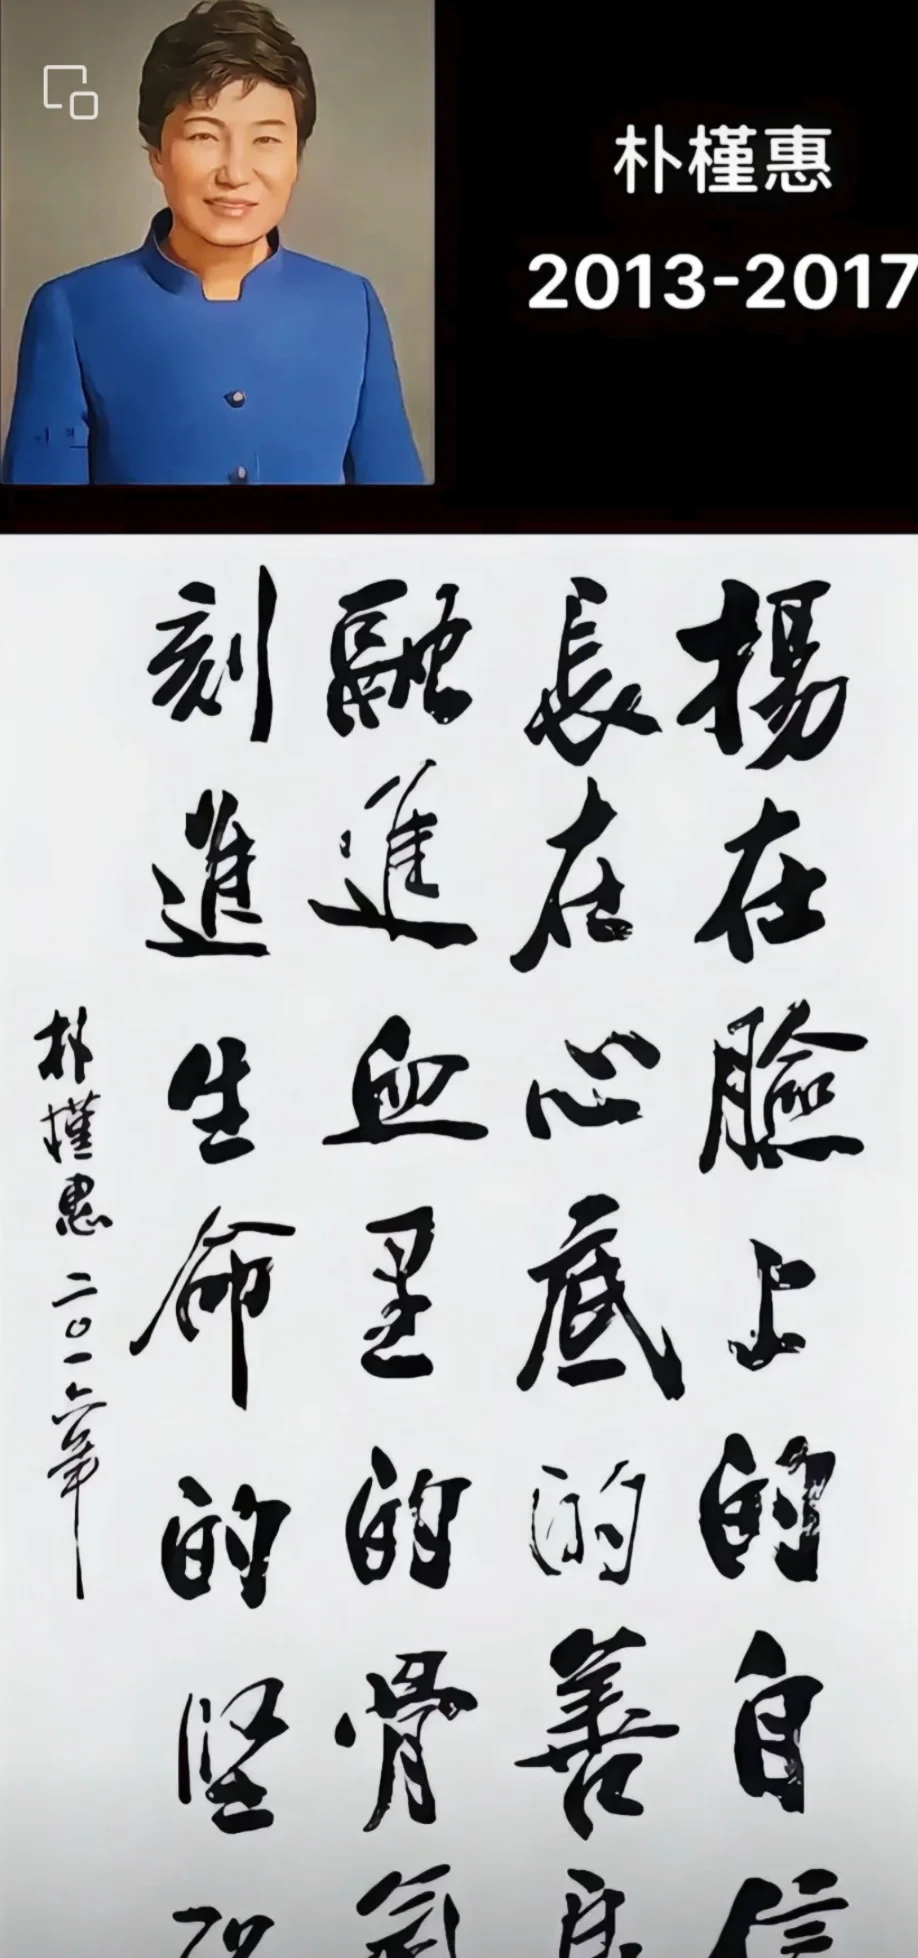 朴槿惠
2013-2017
揚在臉上的自信
長在心底的善良
融進血里的骨氣
刻進生命的坚强
朴槿惠 二〇一六年